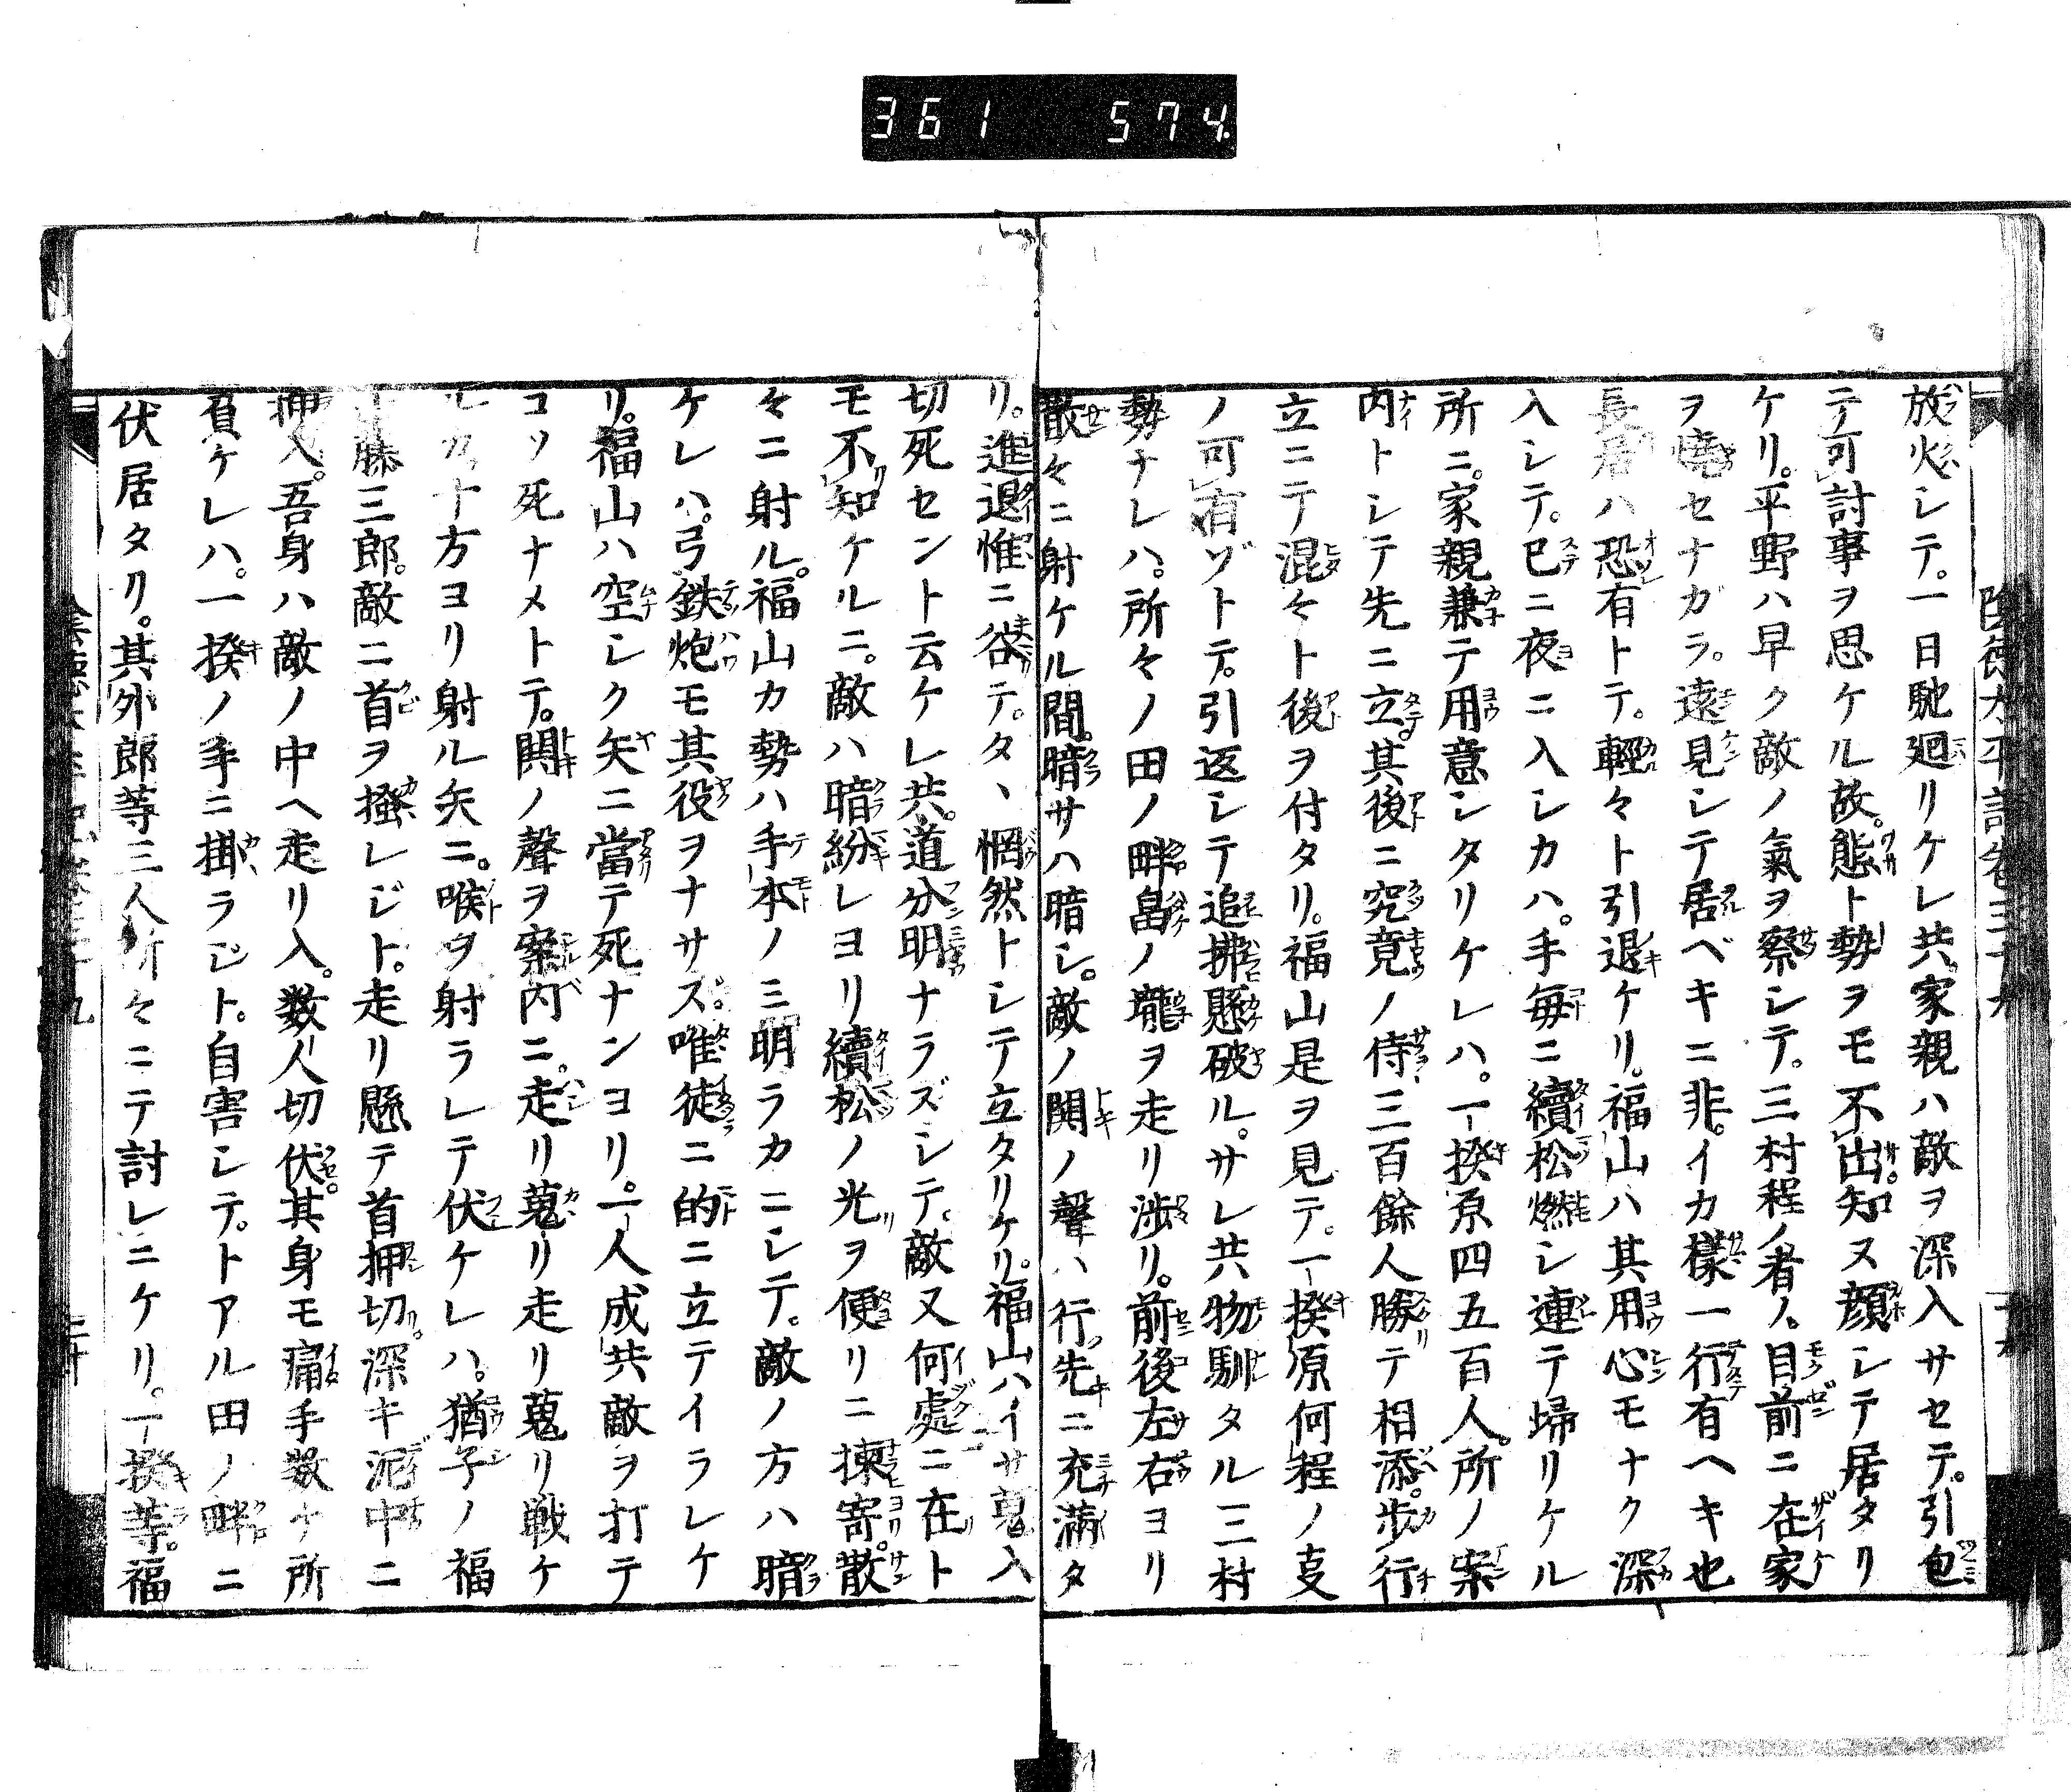 361 574.
放火シテ。一日馳廻リケレ共。家親ハ敵ヲ深入サセテ。引包
テ可討事ヲ思ケル故。態ト勢ヲモ不出知ヌ顔シテ居タリ
ケリ。平野ハ早ク敵ノ氣ヲ察シテ。三村程ノ者ノ。目前ニ在家
ヲ燒セナガラ。遠見シテ居ベキニ非。イカ樣一行有ヘキ也
長居ハ恐有トテ。輕々ト引退ケリ。福山ハ其用心モナク深
入シテ。已ニ夜ニ入シカハ。手毎ニ續松燃シ連テ歸リケル
所ニ。家親兼テ用意シタリケレハ。一揆原四五百人。所ノ案
内トシテ先ニ立。其後ニ究竟ノ侍三百餘人勝テ相添。歩行
立ニテ混々ト後ヲ付タリ。福山是ヲ見テ。一揆原何程ノ支
ノ可有ゾトテ。引返シテ追拂懸破ル。サレ共物馴タル三村
勢ナレハ。所々ノ田ノ畔畠ノ壠ヲ走リ渉リ。前後左右ヨリ
散々ニ射ケル間。暗サハ暗シ。敵ノ鬨ノ聲ハ行先ニ充滿タ
リ。進退惟ニ谷テ。タヽ惘然トシテ立タリケリ。福山ハイサ蒐入
切死セント云ケレ共。道分明ナラズシテ。敵又何處ニ在ト
モ不知ケルニ。敵ハ暗紛レヨリ續松ノ光ヲ便リニ揀寄。散
々ニ射ル。福山カ勢ハ手本ノミ明ラカニシテ。敵ノ方ハ暗
ケレハ。弓鉄炮モ其役ヲナサズ。唯徒ニ的ニ立テイラレケ
リ。福山ハ空シク矢ニ當テ死ナンヨリ。一人成共敵ヲ打テ
コソ死ナメトテ。鬨ノ聲ヲ案内ニ。走リ蒐リ走リ蒐リ戦ケ
ルカ。十方ヨリ射ル矢ニ。喉ヲ射ラレテ伏ケレハ。猶子ノ福
藤三郎。敵ニ首ヲ掻レジト。走リ懸テ首押切。深キ泥中ニ
押入。吾身ハ敵ノ中ヘ走リ入。数人切伏。其身モ痛手数ケ所
負ケレハ。一揆ノ手ニ掛ラジト。自害シテ。トアル田ノ畔ニ
伏居タリ。其外郎等三人所々ニテ討レニケリ。一揆等。福